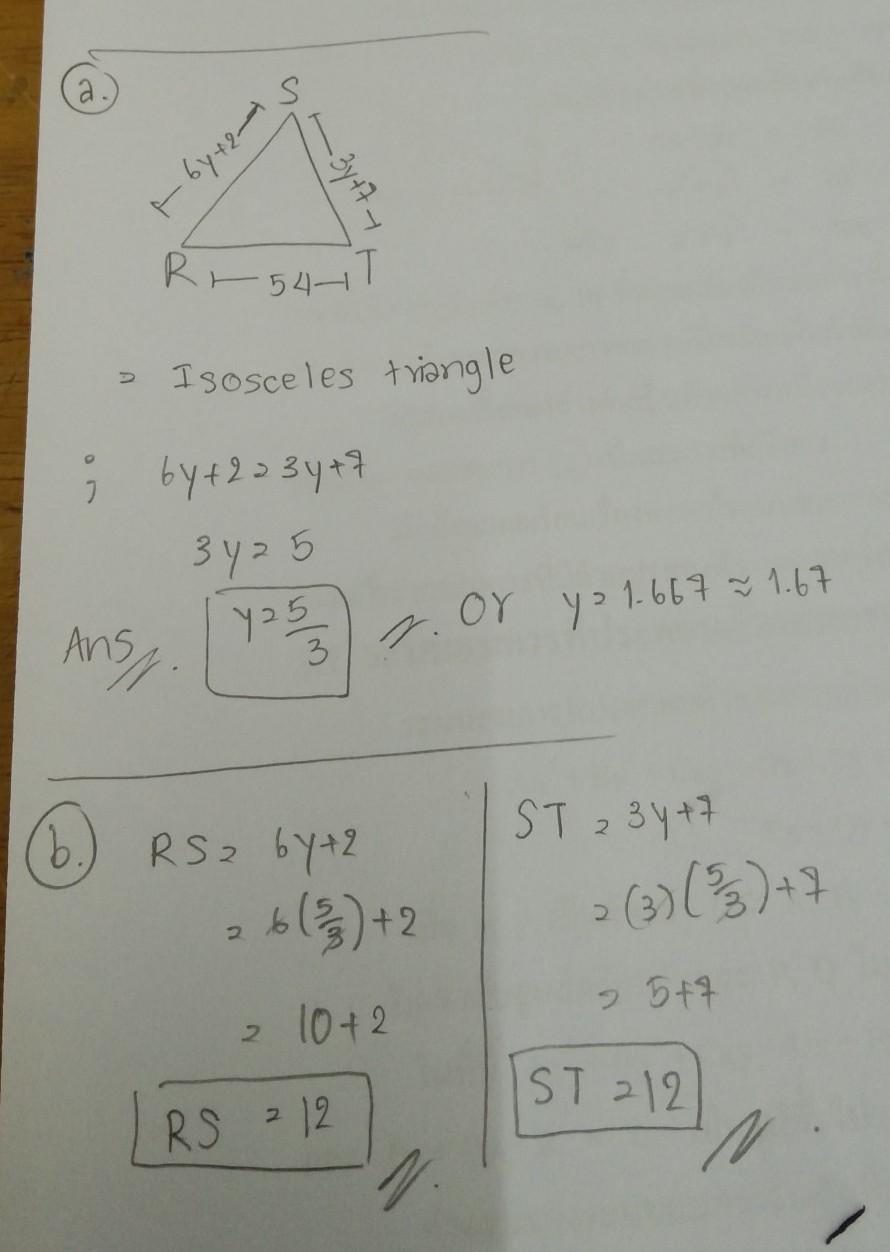 a.
S
6y+2
3y+7
R 54 T
= Isosceles triangle
; 6y+2=3y+7
3y=5
Ans y=5/3 or y=1.667≈1.67
b. RS= 6y+2
= 6(5/3)+2
= 10+2
RS = 12
ST = 3y+7
= (3)(5/3)+7
= 5+7
ST =12